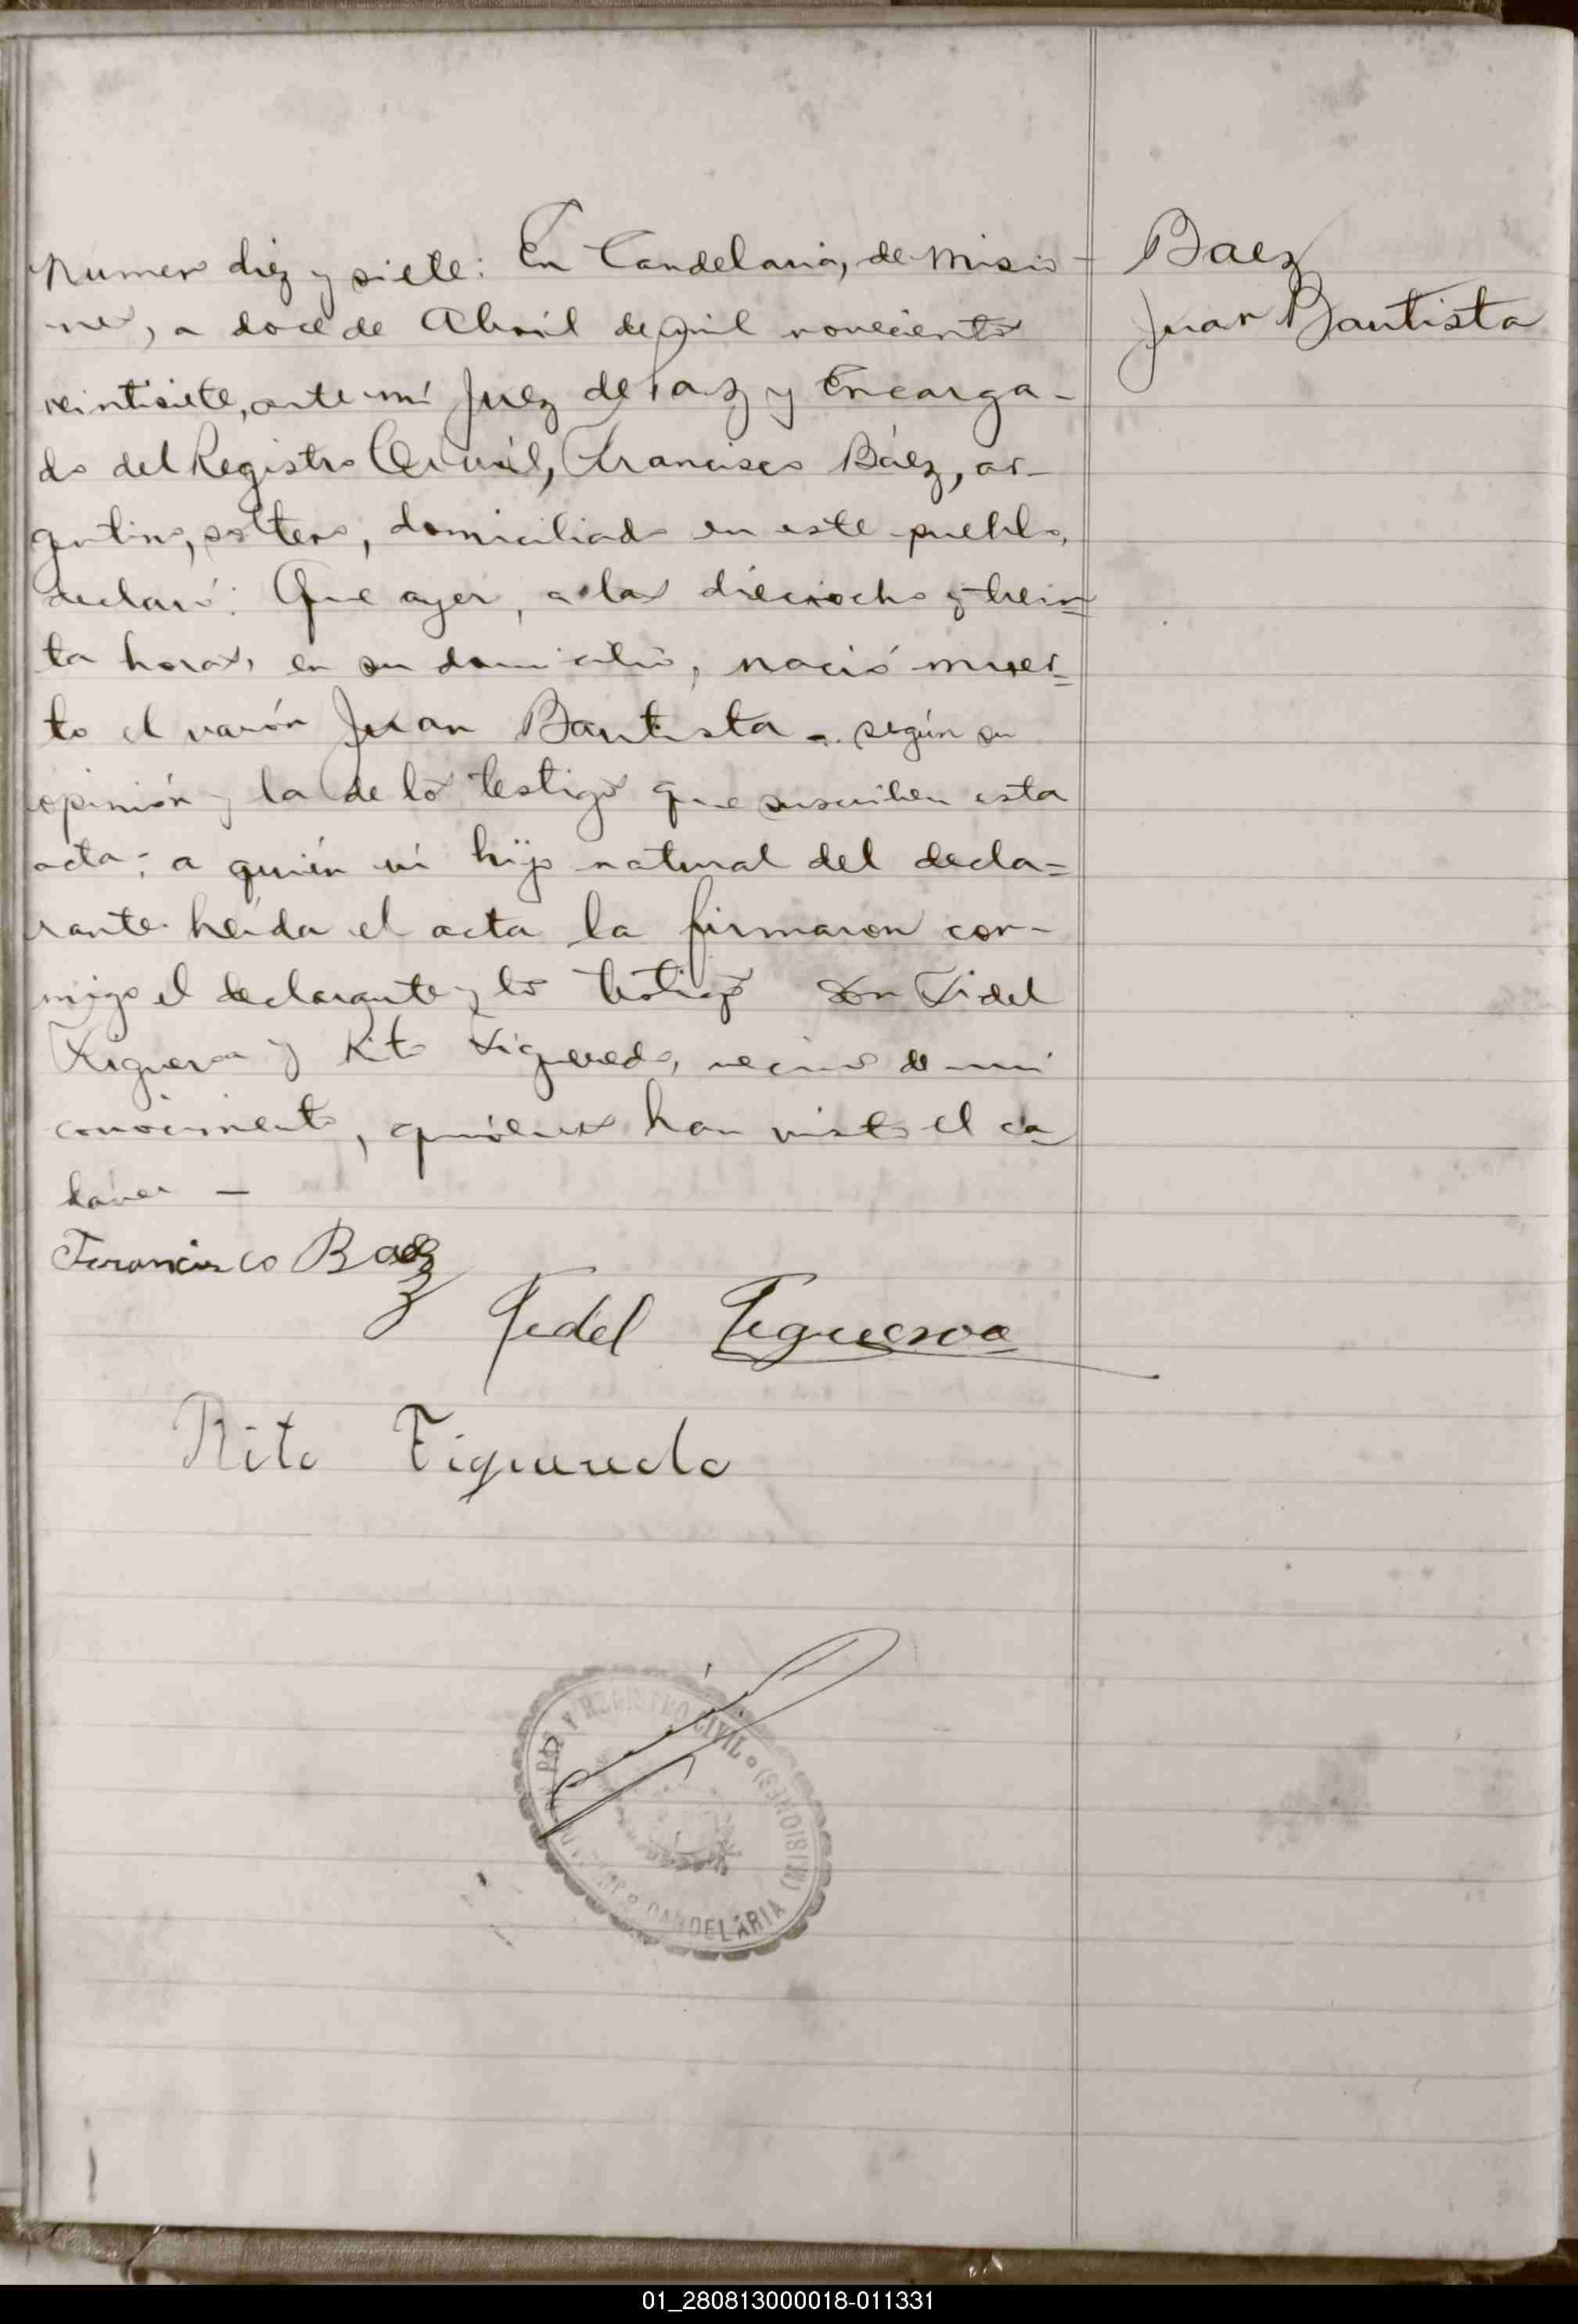 Numero diez y siete: En Candelaria, de Misio-
nes, a doce de Abril de mil novecientos
veintisiete, ante mí Juez de Paz y Encarga-
do del Registro Civil, Francisco Báez, ar-
gentino, soltero, domiciliado en este pueblo,
declaró: Que ayer, a las dieciocho y trein
ta horas, en su domicilio, nació muer=
to el varón Juan Bautista -. según su
opinión y la de los testigos que suscriben esta
acta; a quién ví hijo natural del decla=
rante leída el acta la firmaron con-
migo el declarante y los testigos don Fidel
Figueroa y Rito Figueredo, vecinos de mi
conocimiento, quiénes han visto el ca
daver —
Baez
Juan Bautista
Francisco Baez
Fidel Figueroa
Rito Figueredo
PAZ Y REGISTRO CIVIL
CANDELARIA (MISIONES)
01_280813000018-011331